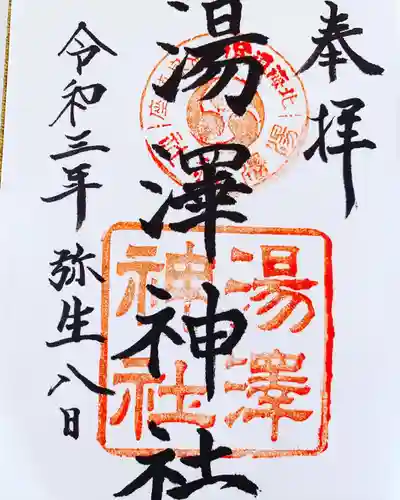 奉拝
湯澤神社
湯澤
神社
令和三年 弥生八日